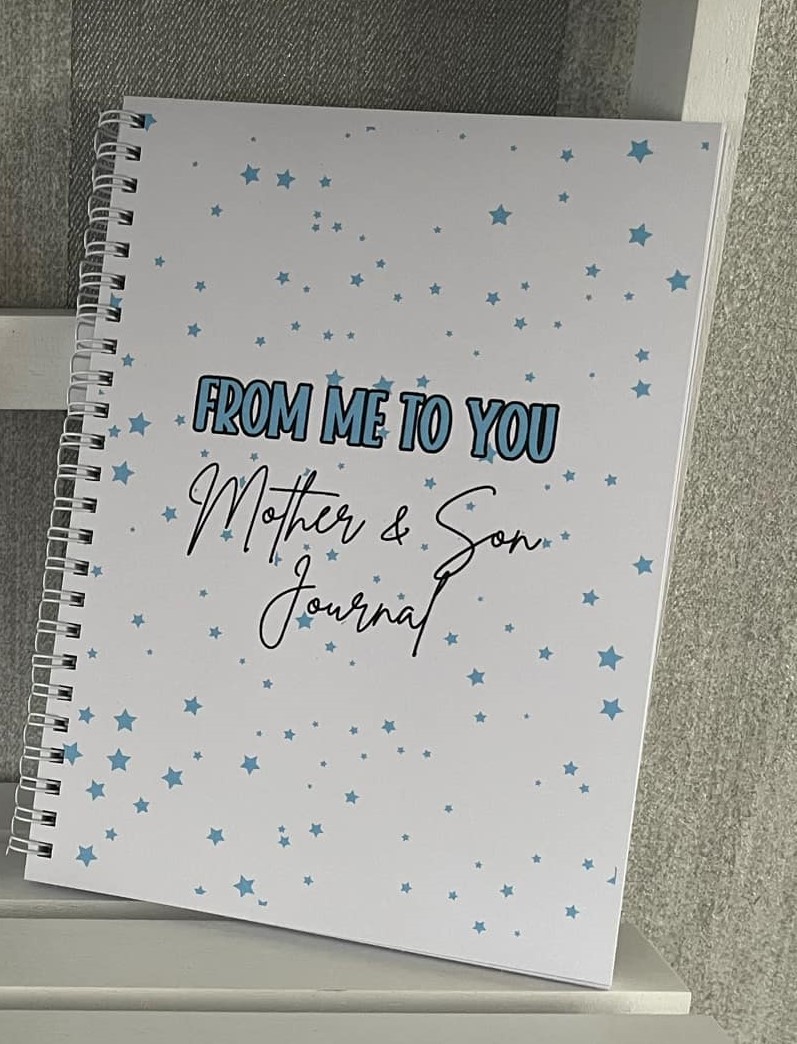 FROM ME TO YOU
Mother & Son
Journal